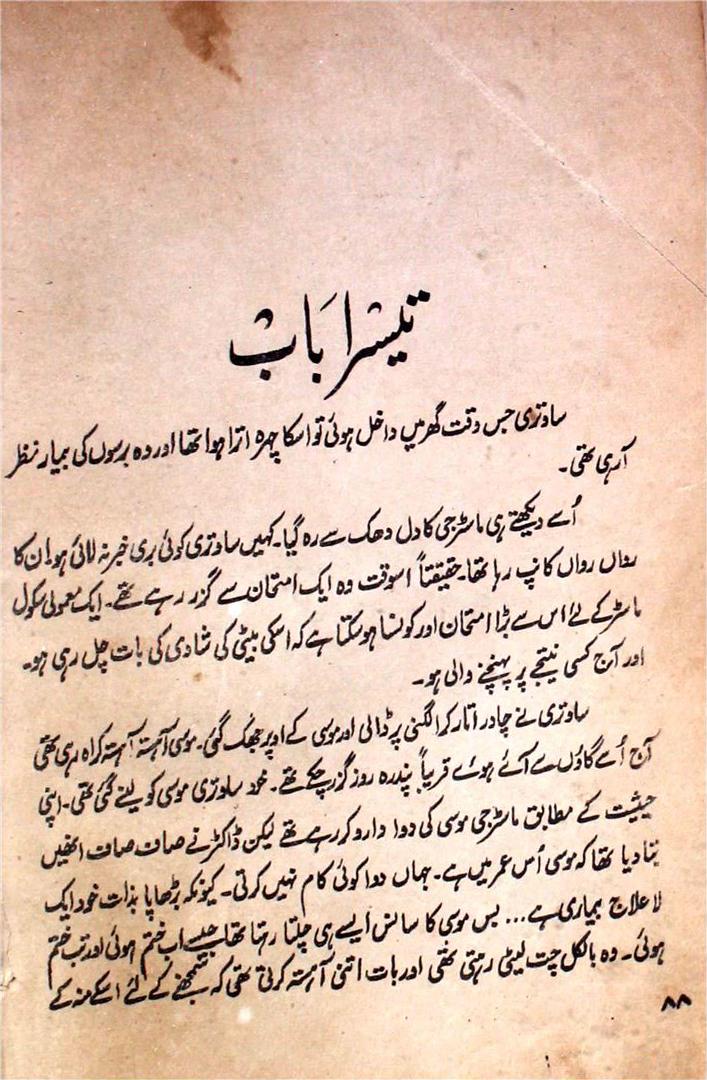 تیسرا باب
ساوتری جس وقت گھر میں داخل ہوئی تو اسکا چہرہ اترا ہوا تھا اور وہ برسوں کی بیمار نظر
آرہی تھی۔
اُسے دیکھتے ہی ماسٹر جی کا دل دھک سے رہ گیا۔ کہیں ساوتری کوئی بری خبر نہ لائی ہو۔ ان کا
رواں رواں کانپ رہا تھا۔ حقیقتاً اسوقت وہ ایک امتحان سے گزر رہے تھے۔ ایک معمولی سکول
ماسٹر کے لئے اس سے بڑا امتحان اور کونسا ہو سکتا ہے کہ اسکی بیٹی کی شادی کی بات چل رہی ہو۔
اور آج کسی نتیجے پر پہنچنے والی ہو۔
ساوتری نے چادر اتار کر الگنی پر ڈالی اور موسی کے اوپر جھک گئی۔ موسی آہستہ آہستہ کراہ رہی تھی
آج اُسے گاؤں سے آئے ہوئے قریباً پندرہ روز گزر چکے تھے۔ خود ساوتری موسی کو لینے گئی تھی۔ اپنی
حیثیت کے مطابق ماسٹر جی موسی کی دوا دارو کر رہے تھے لیکن ڈاکٹر نے صاف صاف انھیں
بتا دیا تھا کہ موسی اُس عمر میں ہے۔ جہاں دوا کوئی کام نہیں کرتی۔ کیونکہ بڑھاپا بذات خود ایک
لا علاج بیماری ہے... بس موسی کا سانس ایسے ہی چلتا رہتا تھا جیسے اب ختم ہوئی اور تب ختم
ہوئی۔ وہ بالکل چت لیٹی رہتی تھی اور بات اتنی آہستہ کرتی تھی کہ سمجھنے کے لئے اسکے منہ کے
۸۸